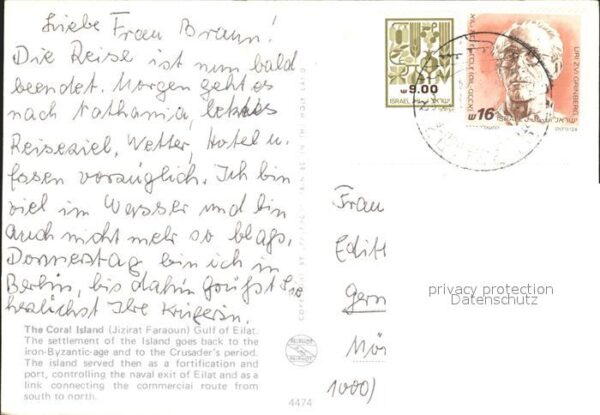 Liebe Frau Braun!
Die Reise ist nun bald
beendet. Morgen geht es
nach Nathania, letztes
Reiseziel, Wetter, Hotel u.
Essen vorzüglich. Ich bin
viel im Wasser und bin
auch nicht mehr so blass,
Donnerstag bin ich in
Berlin, bis dahin grüsst Sie
herzlichst Ihre
The Coral Island (Jizirat Faraoun) Gulf of Eilat.
The settlement of the Island goes back to the
iron-Byzantic-age and to the Crusader's period.
The island served then as a fortification and
port, controlling the naval exit of Eilat and as a
link connecting the commercial route from
south to north.
4474
9.00
ISRAEL ישראל
16
ISRAEL ישראל
URI ZVI GRINBERG
Frau
Edit
Ger
1000)
privacy protection
Datenschutz